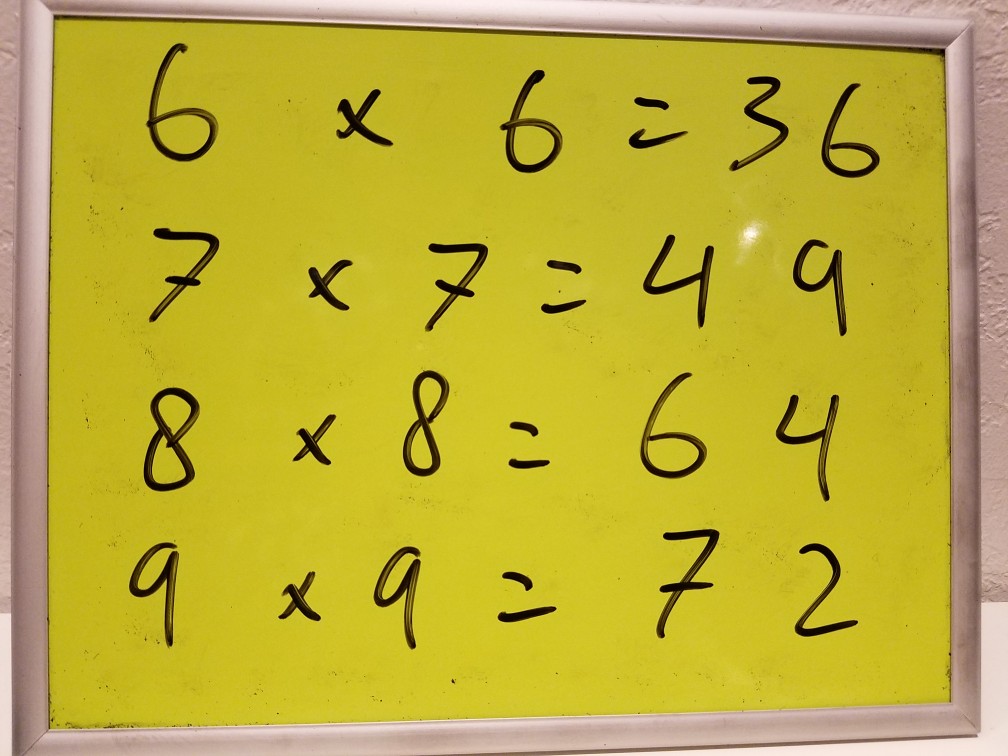 6 x 6 = 36
7 x 7 = 49
8 x 8 = 64
9 x 9 = 72